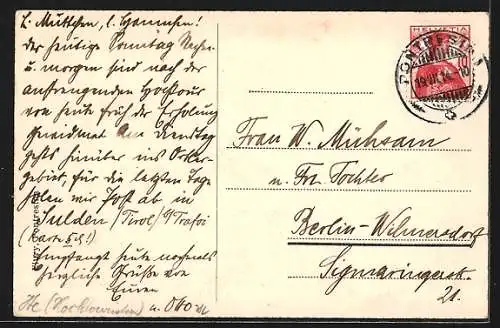 L. Muttchen, l. Hannchen!
Der heutige Sonntag Nachm.
u. morgen sind nach der
anstrengenden Hochtour
von heute früh der Erholung
gewidmet. Am Dienstag
geht's hinüber ins Ortler-
gebiet, für die letzten Tage
holen wir Post ab in
Sulden (Tirol)
(Karte 5 d!)
Empfangt heute nochmals
herzliche Grüße von
Euren
u. Otto
HELVETIA
10
PONTRESINA
Frau W. Mühsam
u. Frl. Tochter
Berlin-Wilmersdorf
Sigmaringerstr.
21.